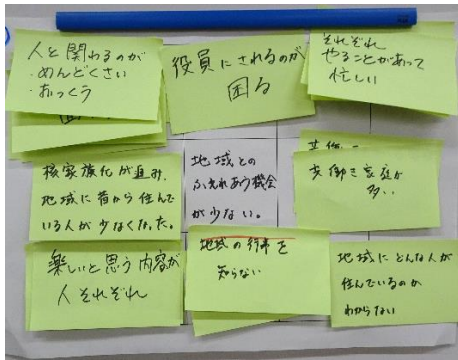 人と関わるのが
・めんどくさい
・おっくう
役員にされるのが
困る
それぞれ
やることがあって
忙しい
核家族化が進み、
地域に昔から住んで
いる人が少なくなった。
地域との
ふれあう機会
が少ない。
共働き家庭が
多い
楽しいと思う内容が
人それぞれ
地域の行事を
知らない
地域にどんな人が
住んでいるのか
わからない